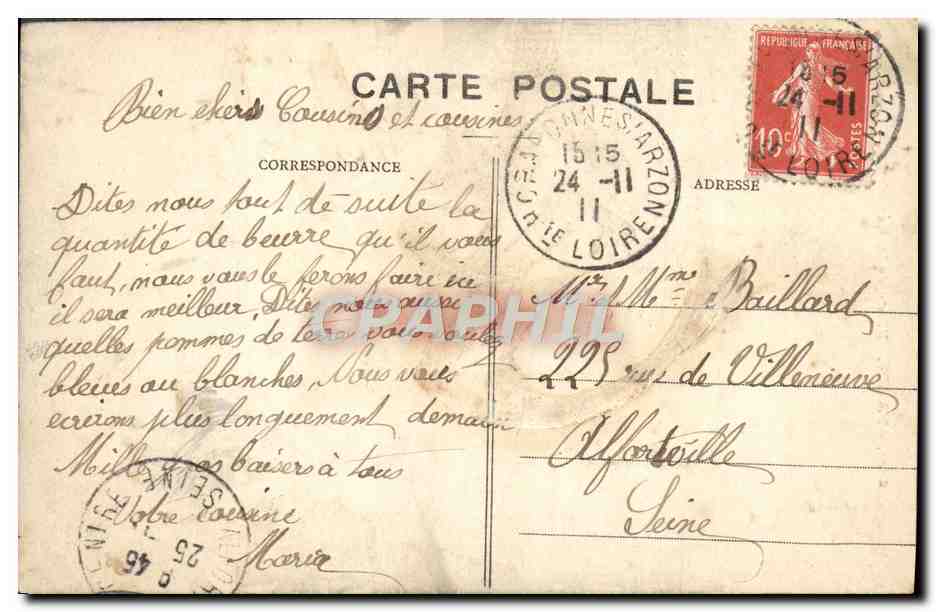 CARTE POSTALE
Bien chers Cousins et cousines
CORRESPONDANCE
Dites nous tout de suite la
quantité de beurre qu'il vous
faut, nous vous le ferons faire ici
il sera meilleur. Dites nous aussi
quelles pommes de terre vous voulez
bleues ou blanches. Nous vous
ecrirons plus longuement demain
Mille gros baisers à tous
Votre cousine
Maria
ADRESSE
Mr & Mme Baillard
225 rue de Villeneuve
Alfortville
Seine
REPUBLIQUE FRANÇAISE
10c
POSTES
15 15
24 -11
11
LOIRE
15 15
24 -11
11
CHte LOIRE
SEINE
25
CPAPHIL